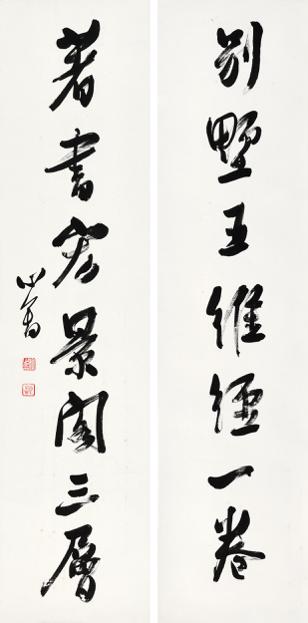 別墅王維經一卷
著書宏景閣三層
心畬